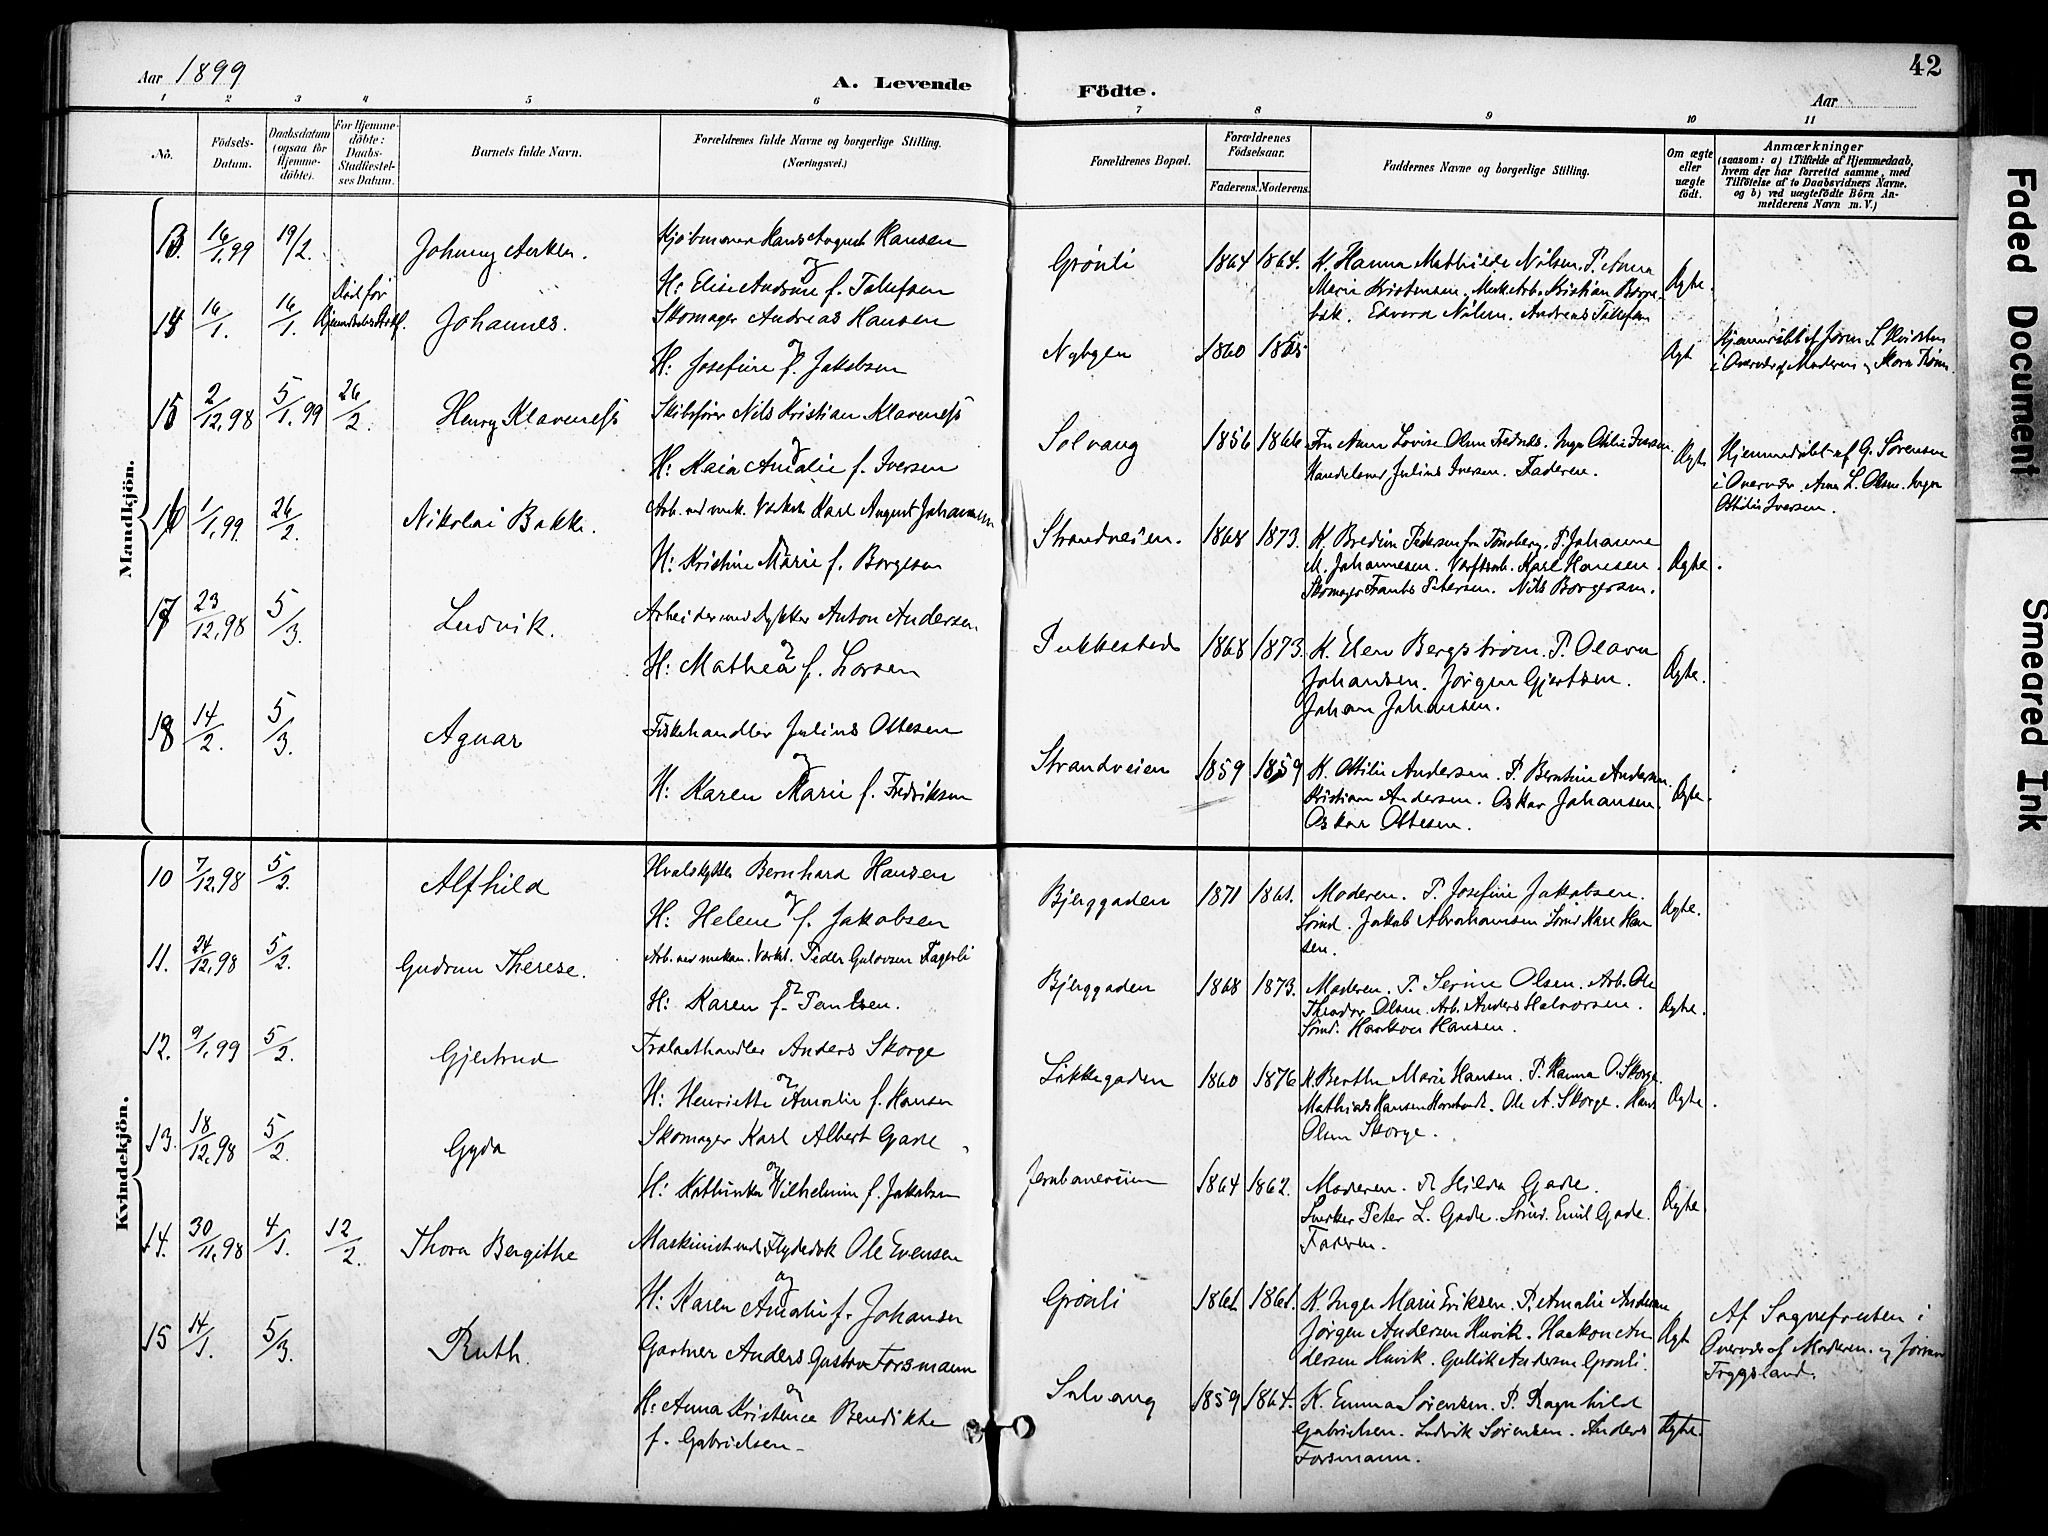 Aar 1899
A. Levende
Födte.
Aar
42
1 2 3 4 5 6 7 8 9 10 11
No.
Födsels-
Datum.
Daabsdatum
(ogsaa for
Hjemme-
döbte).
For Hjemme-
döbte:
Daabs-
Stadfæstel-
ses Datum.
Barnets fulde Navn.
Forældrenes fulde Navne og borgerlige Stilling.
(Næringsvei.)
Forældrenes Bopæl.
Forældrenes
Födselsaar.
Faderens. Moderens.
Faddernes Navne og borgerlige Stilling.
Om ægte
eller
uægte
födt.
Anmærkninger
(saasom: a) i Tilfælde af Hjemmedaab,
hvem der har forrettet samme, med
Tilföielse af to Daabsvidners Navne.
og b) ved uægtefödte Börn An-
melderens Navn m. V.)
Mandkjön.
13. 16/1.99 19/2. Johnny
Hans August Hansen
og
H: Elise Andrine f. Tollefsen
Grönli 1864 1864. K. Hanna Mathilde Nilsen. P. Anna
Marie Kristensen. Kristian
Edvard Nilsen. Andreas Tollefsen
Ægte.
14 16/1. 16/1. Död før
Johannes.
Skomager Andreas Hansen
og
H: Josefine f. Jakobsen
Nybyen 1860 1865 Ægt
i Overvær af Moderen og
15 2/12.98 5/1.99 26/2. Henry Klaveness
Skibsfører Nils Kristian Klaveness
og
H: Kaia Amalie f. Iversen
Solvang 1856 1866 Fru Anna Lovise Olsen
Julius Iversen. Faderen.
Ægte
Hjemmedöbt af G. Sörensen
i Overvær. Anna L. Olsen. Inga
Ottilie Iversen.
16 1/1.99. 26/2. Nikolai Bakke.
Arb. ved mek. Værksted Karl August Johannesen
og
H: Kristine Marie f. Borgesen
Strandveien. 1868 1873. K. Pedersen fra Tönsberg. P. Johanne
M. Johannesen. Karl Hansen.
Skomager Frants Petersen. Nils Borgersen.
Ægte.
17 23/12.98 5/3. Ludvik.
Arbeider ved Anton Andersen
og
H: Mathea f. Larsen
1868 1873. K. Elen Bergström. P. Olava
Johansen. Jörgen Gjertsen.
Johan Johansen.
Ægte.
18 14/2. 5/3. Agnar
Fiskehandler Julius Ottesen
og
H: Karen Marie f. Fredriksen
Strandveien 1859. 1859 K. Ottilie Andersen. P. Berntine Andersen.
Kristian Andersen. Oskar Johansen.
Oskar Ottesen.
Ægte.
Kvindekjön.
10 7/12.98 5/2. Alfhild
Hvalskytter Bernhard Hansen
og
H: Helene f. Jakobsen
Bjerggaden 1871 1861. Moderen. P. Josefine Jakobsen.
Sömd. Jakob Abrahamsen Sömd Karl Han
sen.
Ægte.
11. 24/12.98 5/2. Gudrun Therese.
Arb. ved mekan. Værkst. Peder Gulovsen Fagerli
og
H: Karen f. Paulsen.
Bjerggaden 1868 1873. Moderen. P. Serine Olsen. Arb. Ole
Theodor Olsen. Arb. Anders Halvorsen.
Sömd. Haakon Hansen.
Ægte.
12. 9/1.99 5/2. Gjertrud
Trælasthandler Anders Skorge
og
H: Henriette Amalie f. Hansen
Lökkegaden 1860 1876 K. Berthe Marie Hansen. P. Hanna O. Skorge.
Mathias Hansen Ole A. Skorge. Hans
Olsen Skorge.
Ægte.
13. 18/12.98 5/2. Gyda
Skomager Karl Albert Gade
og
H: Kathinka Vilhelmine f. Jakobsen
Jernbaneveien 1864 1862. Moderen. P. Hilda Gade.
Peter L. Gade. Sömd. Emil Gade.
Faderen.
Ægte
14. 30/11.98 4/1. 12/2. Thora Bergithe
Maskinist ved Flydedok Ole Evensen
og
H: Karen Amalie f. Johansen
Grönli 1861 1861. K. Inger Marie Eriksen. P. Amalie Andersen
Jörgen Andersen Huvik. Haakon An
dersen Huvik. Gullik Andersen Grönli.
Ægt
Af i
Overvær af Moderen og
Tryggsland.
15 14/1. 5/3. Ruth.
Gartner Anders Gustav Forsmann
og
H: Anna Kristence Benedikte
f. Gabrielsen
Solvang 1859 1864. K. Emma Sörensen. P. Ragnhild
Gabrielsen. Ludvik Sörensen. Anders
Forsmann.
Ægte.
Faded Document
Smeared Ink